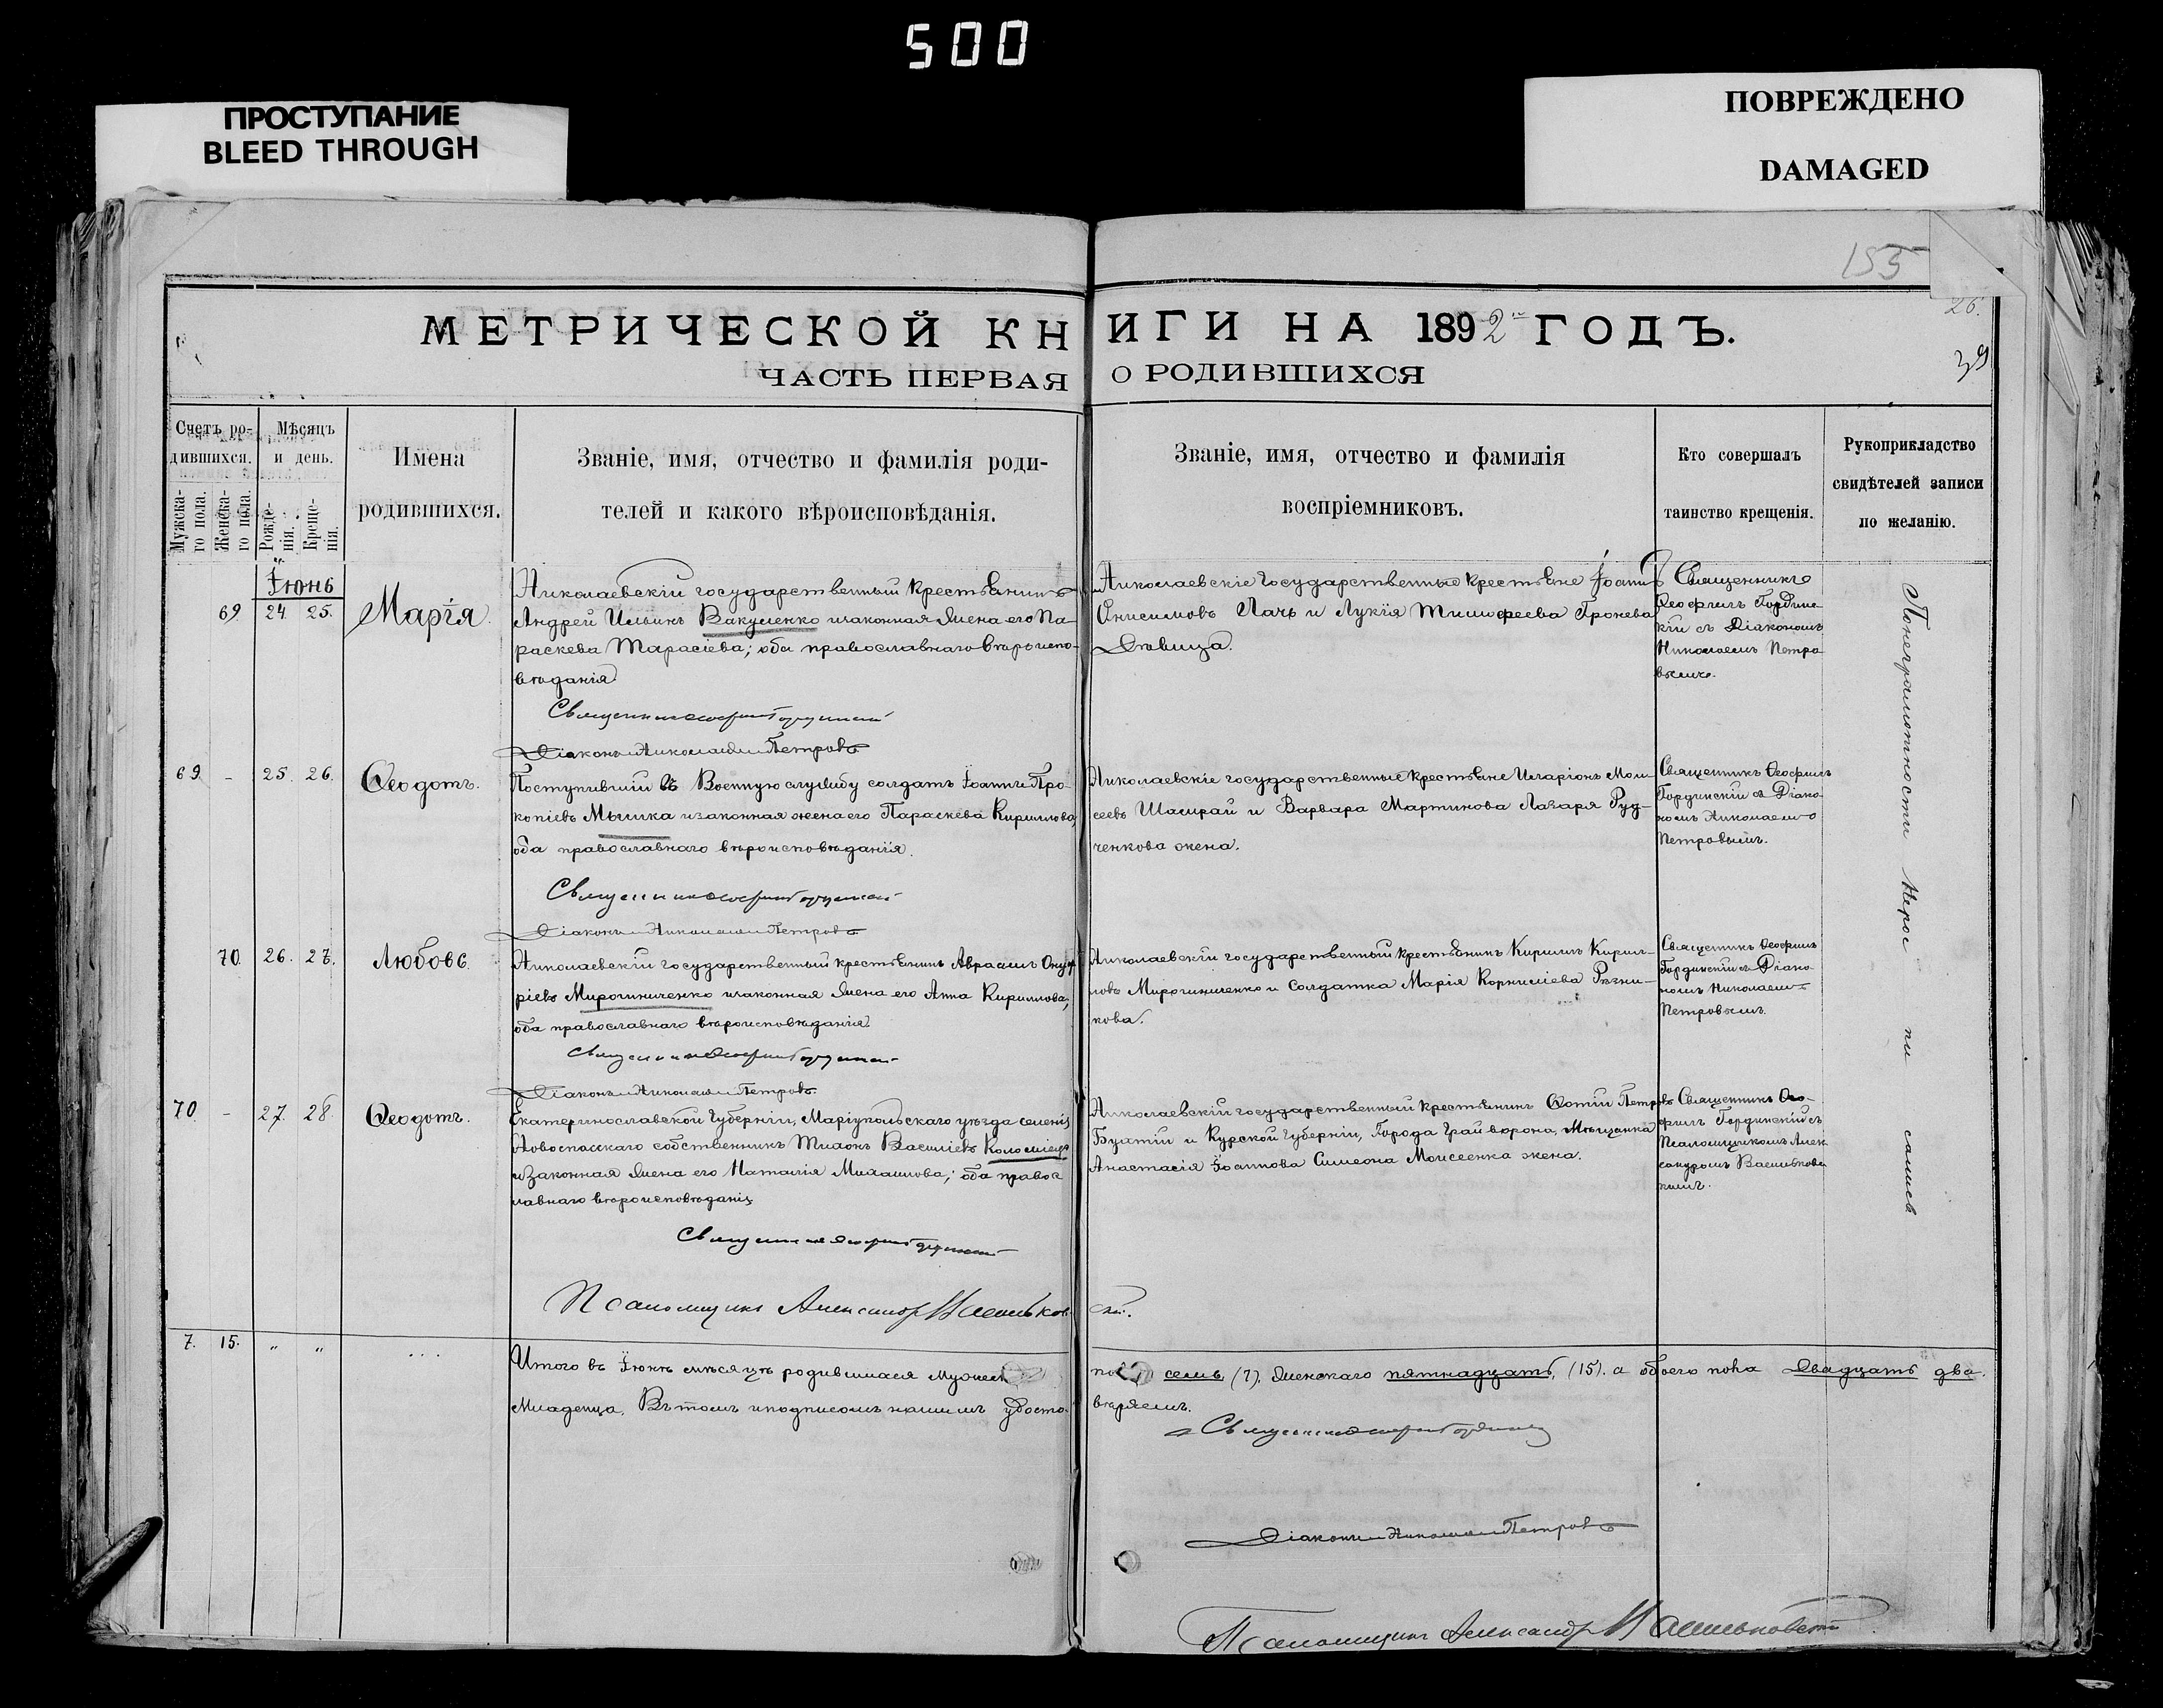 500
ПРОСТУПАНИЕ
BLEED THROUGH
ПОВРЕЖДЕНО
DAMAGED
155
26.
39
МЕТРИЧЕСКОЙ КНИГИ НА 1892 ГОДЪ.
ЧАСТЬ ПЕРВАЯ О РОДИВШИХСЯ
Счетъ ро-
дившихся.
Мужска-
го пола.
Женска-
го пола.
Мѣсяцъ
и день.
Рожде-
нія.
Креще-
нія.
Имена
родившихся.
Званіе, имя, отчество и фамилія роди-
телей и какого вѣроисповѣданія.
Званіе, имя, отчество и фамилія
воспріемниковъ.
Кто совершалъ
таинство крещенія.
Рукоприкладство
свидѣтелей записи
по желанію.
Іюнь
69. 24. 25. Марія.
Николаевскій государственный крестьянинъ
Андрей Ильинъ Вакуленко и законная жена его Па-
раскева Тарасіева; оба православнаго вѣроиспо-
вѣданія.
Священникъ Ѳеофилъ Гординскій
Діаконъ Николай Петровъ
Николаевскіе государственные крестьяне Іоаннъ
Онисимовъ Лачъ и Лукія Тимофеева
Дѣвица.
Священникъ
Ѳеофилъ Гордин-
скій съ Діакономъ
Николаемъ Петро-
вымъ.
69. - 25. 26. Ѳеодотъ.
Поступившій въ Военную службу солдатъ Іоаннъ Про-
копіевъ Мышка и законная жена его Параскева Кириллова,
оба православнаго вѣроисповѣданія.
Священникъ Ѳеофилъ Гординскій
Діаконъ Николай Петровъ
Николаевскіе государственные крестьяне Иларіонъ Мои-
сеевъ Шамрай и Варвара Мартинова Лазаря Руд-
ченкова жена.
Священникъ Ѳеофилъ
Гординскій съ Діако-
номъ Николаемъ
Петровымъ.
70. 26. 27. Любовь.
Николаевскій государственный крестьянинъ Авраамъ Онуф-
ріевъ Мирошниченко и законная жена его Анна Кириллова,
оба православнаго вѣроисповѣданія.
Священникъ Ѳеофилъ Гординскій
Діаконъ Николай Петровъ
Николаевскій государственный крестьянинъ Кириллъ Кирил-
ловъ Мирошниченко и Солдатка Марія Корниліева Рѣзни-
кова.
Священникъ Ѳеофилъ
Гординскій съ Діако-
номъ Николаемъ
Петровымъ.
70. - 27. 28. Ѳеодотъ.
Екатеринославской Губерніи, Маріупольскаго уѣзда селенія
Новоспасскаго собственникъ Тихонъ Василіевъ Коломіецъ
и законная жена его Наталія Михаилова; оба правос-
лавнаго вѣроисповѣданія.
Священникъ Ѳеофилъ Гординскій
Псаломщикъ Александръ Васильковскій.
Николаевскій государственный крестьянинъ Фотій Петровъ
и Курской Губерніи, Города Грайворона, Мѣщанка
Анастасія Іоаннова Симеона Моисеенка жена.
Священникъ Ѳео-
филъ Гординскій съ
Псаломщикомъ Алек-
сандромъ Васильковс-
кимъ.
По неграмотности
7. 15. „ „ ...
Итого въ Іюнѣ мѣсяцѣ родившихся семь (7). Женскаго пятнадцать, (15). а обоего пола Двадцать два.
Младенца. Въ томъ и подписомъ нашимъ удосто-
вѣряемъ.
Священникъ Ѳеофилъ Гординскій
Діаконъ Николай Петровъ
Псаломщикъ Александръ Васильковскій